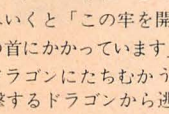 いくと「この牢を開
の首にかかっています
ドラゴンにたちむかう
撃するドラゴンから逃